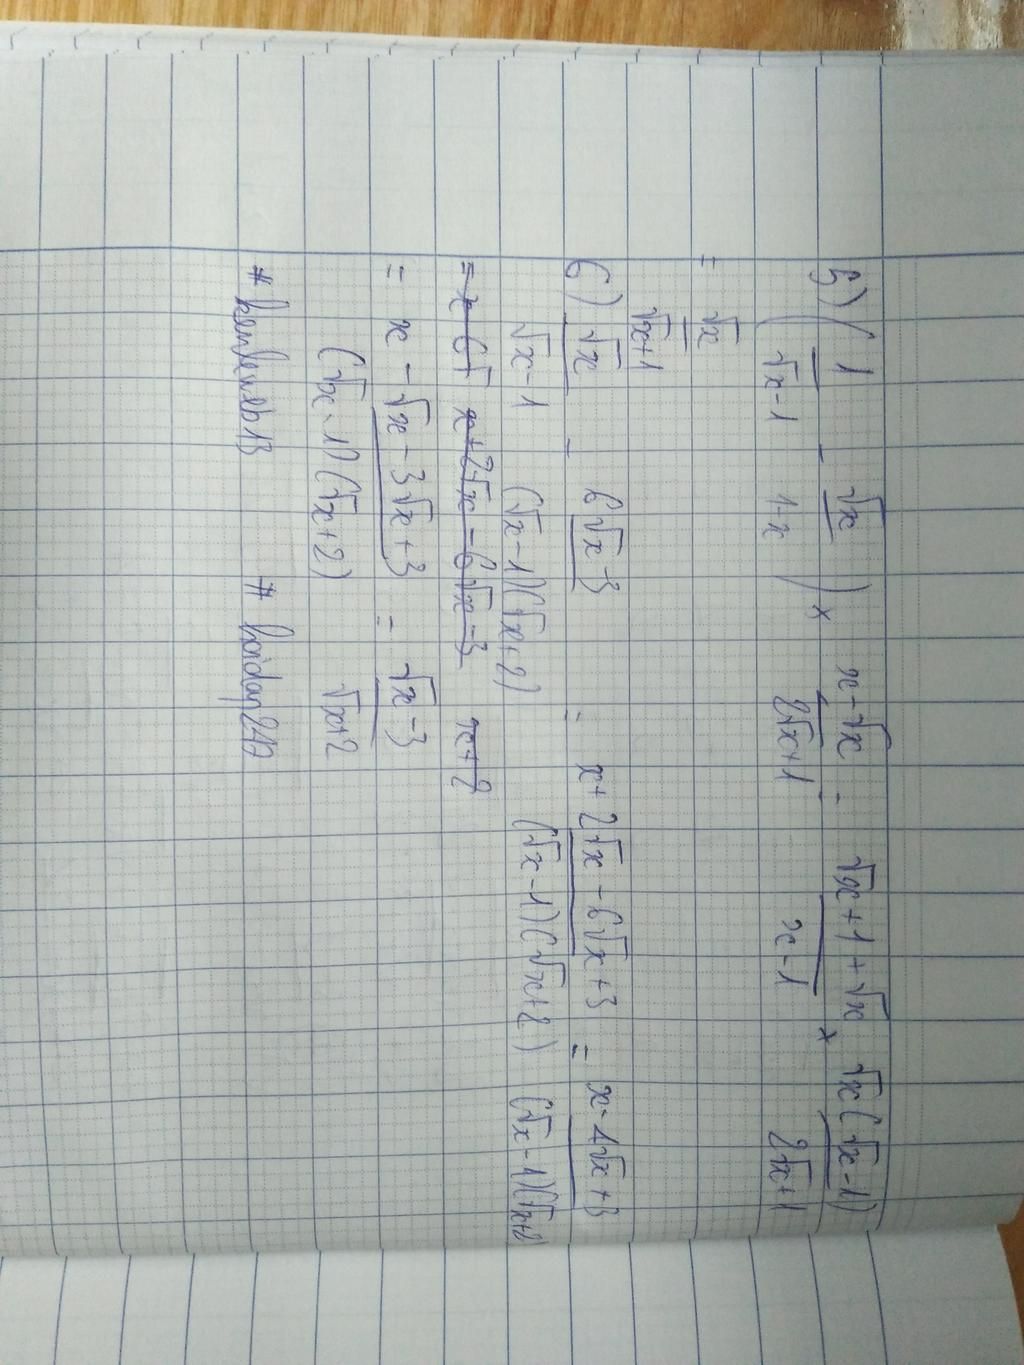 5) ( 1/(√x-1) - √x/(1-x) ) x (x-√x)/(2√x+1) = (√x+1+√x)/(x-1) x √x(√x-1)/(2√x+1)
= √x/(√x+1)
6) √x/(√x-1) - (6√x-3)/((√x-1)(√x+2)) = (x+2√x-6√x+3)/((√x-1)(√x+2)) = (x-4√x+3)/((√x-1)(√x+2))
= (x-√x-3√x+3)/((√x-1)(√x+2)) = (√x-3)/(√x+2)
# # hoidap247